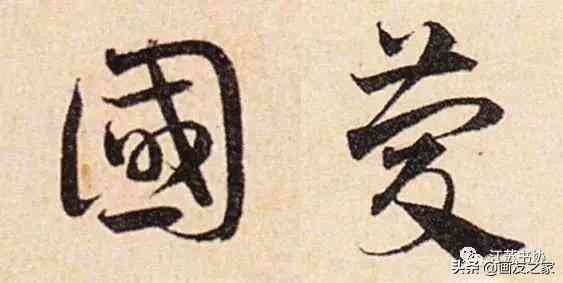 愛國
江苏书协
头条 @画友之家